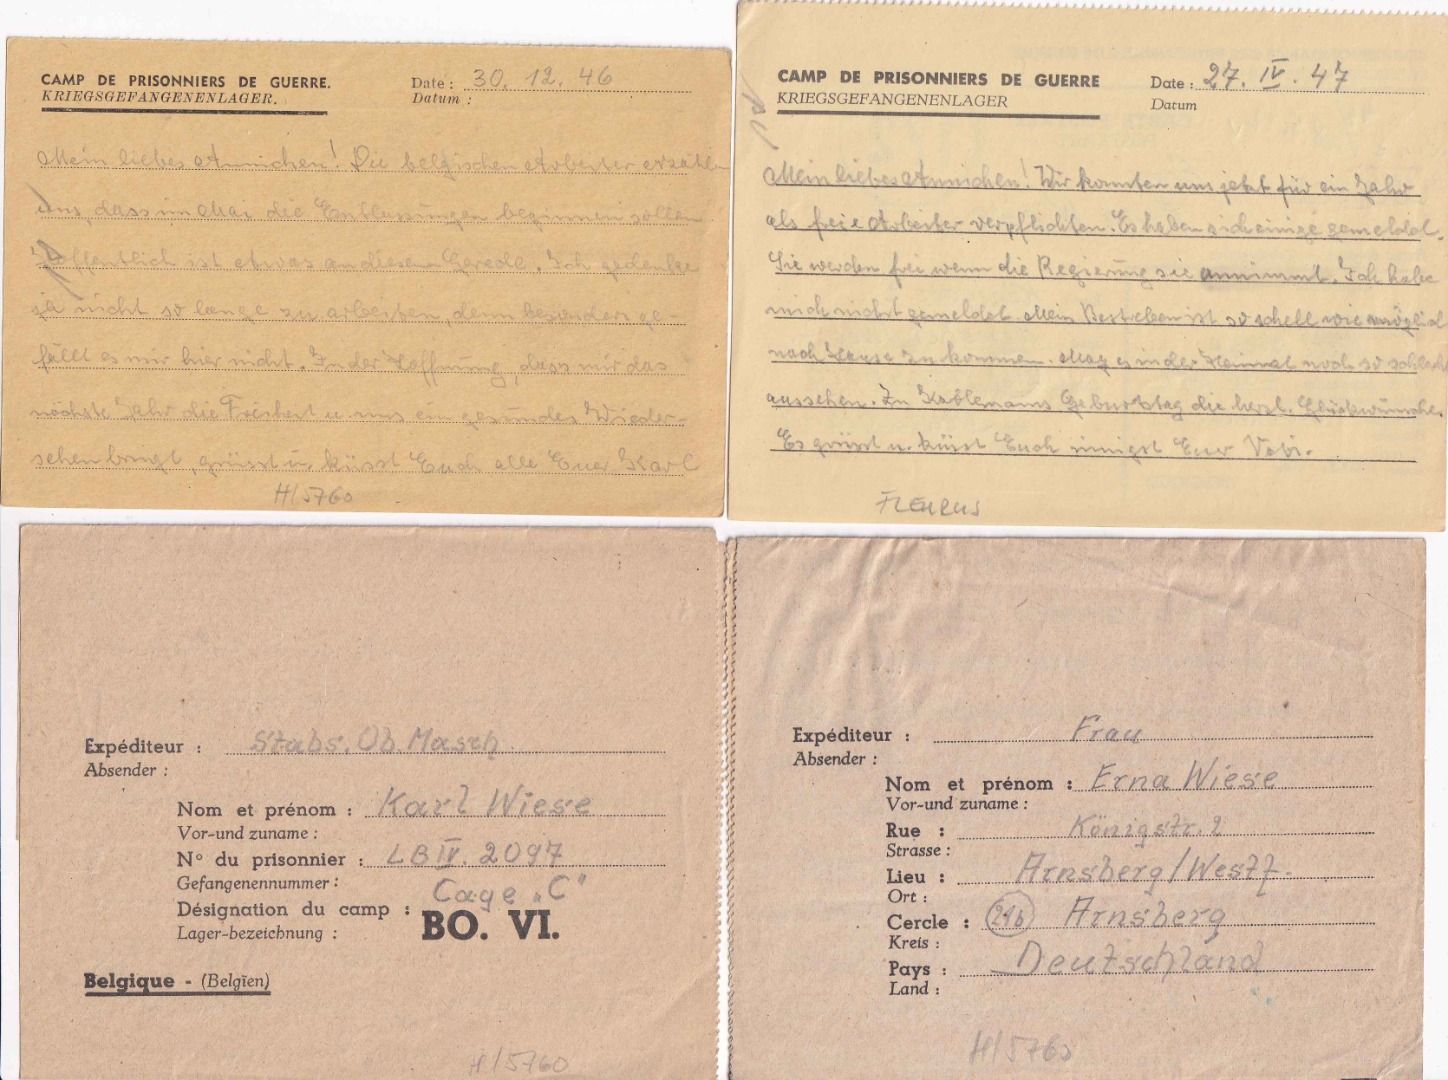 CAMP DE PRISONNIERS DE GUERRE.
KRIEGSGEFANGENENLAGER.
Date : 30. 12. 46
Datum :
Mein liebes Annichen! Die belgischen Arbeiter erzählen
uns, dass im Mai die Entlassungen beginnen sollen
Hoffentlich ist etwas an diesem Gerede. Ich gedenke
ja nicht so lange zu arbeiten, denn besonders ge-
fällt es mir hier nicht. In der Hoffnung, dass mir das
nächste Jahr die Freiheit u. uns ein gesundes Wieder-
sehen bringt, grüsst u. küsst Euch alle Euer Karl
H/5760
CAMP DE PRISONNIERS DE GUERRE
KRIEGSGEFANGENENLAGER
Date : 27. IV. 47
Datum
Mein liebes Annichen! Wir konnten uns jetzt für ein Jahr
als freie Arbeiter verpflichten. Es haben sich einige gemeldet.
Sie werden frei wenn die Regierung sie annimmt. Ich habe
mich nicht gemeldet. Mein Bestreben ist so schell wie möglich
nach Hause zu kommen. Mag es in der Heimat noch so schlecht
aussehen. Zu Geburtstag die herzl. Glückwünsche.
Es grüsst u. küsst Euch innigst Euer Vati.
FLEURUS
Expéditeur : Stabs. Ob. Masch.
Absender :
Nom et prénom : Karl Wiese
Vor-und zuname :
N° du prisonnier : LB IV. 2097
Gefangenennummer :
Cage „C"
Désignation du camp : BO. VI.
Lager-bezeichnung :
Belgique - (Belgïen)
H/5760
Expéditeur : Frau
Absender :
Nom et prénom : Erna Wiese
Vor-und zuname :
Rue : Königstr. 2
Strasse :
Lieu : Arnsberg/Westf.
Ort :
Cercle : 21b Arnsberg
Kreis :
Pays : Deutschland
Land :
H/5760